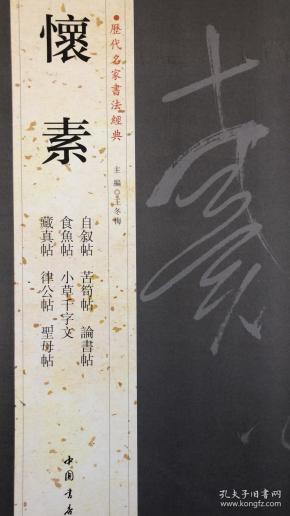 懷素
●歷代名家書法經典
主編◎王冬梅
自叙帖 苦筍帖 論書帖
食魚帖 小草千字文
藏真帖 律公帖 聖母帖
中国書店
素
孔夫子旧书网